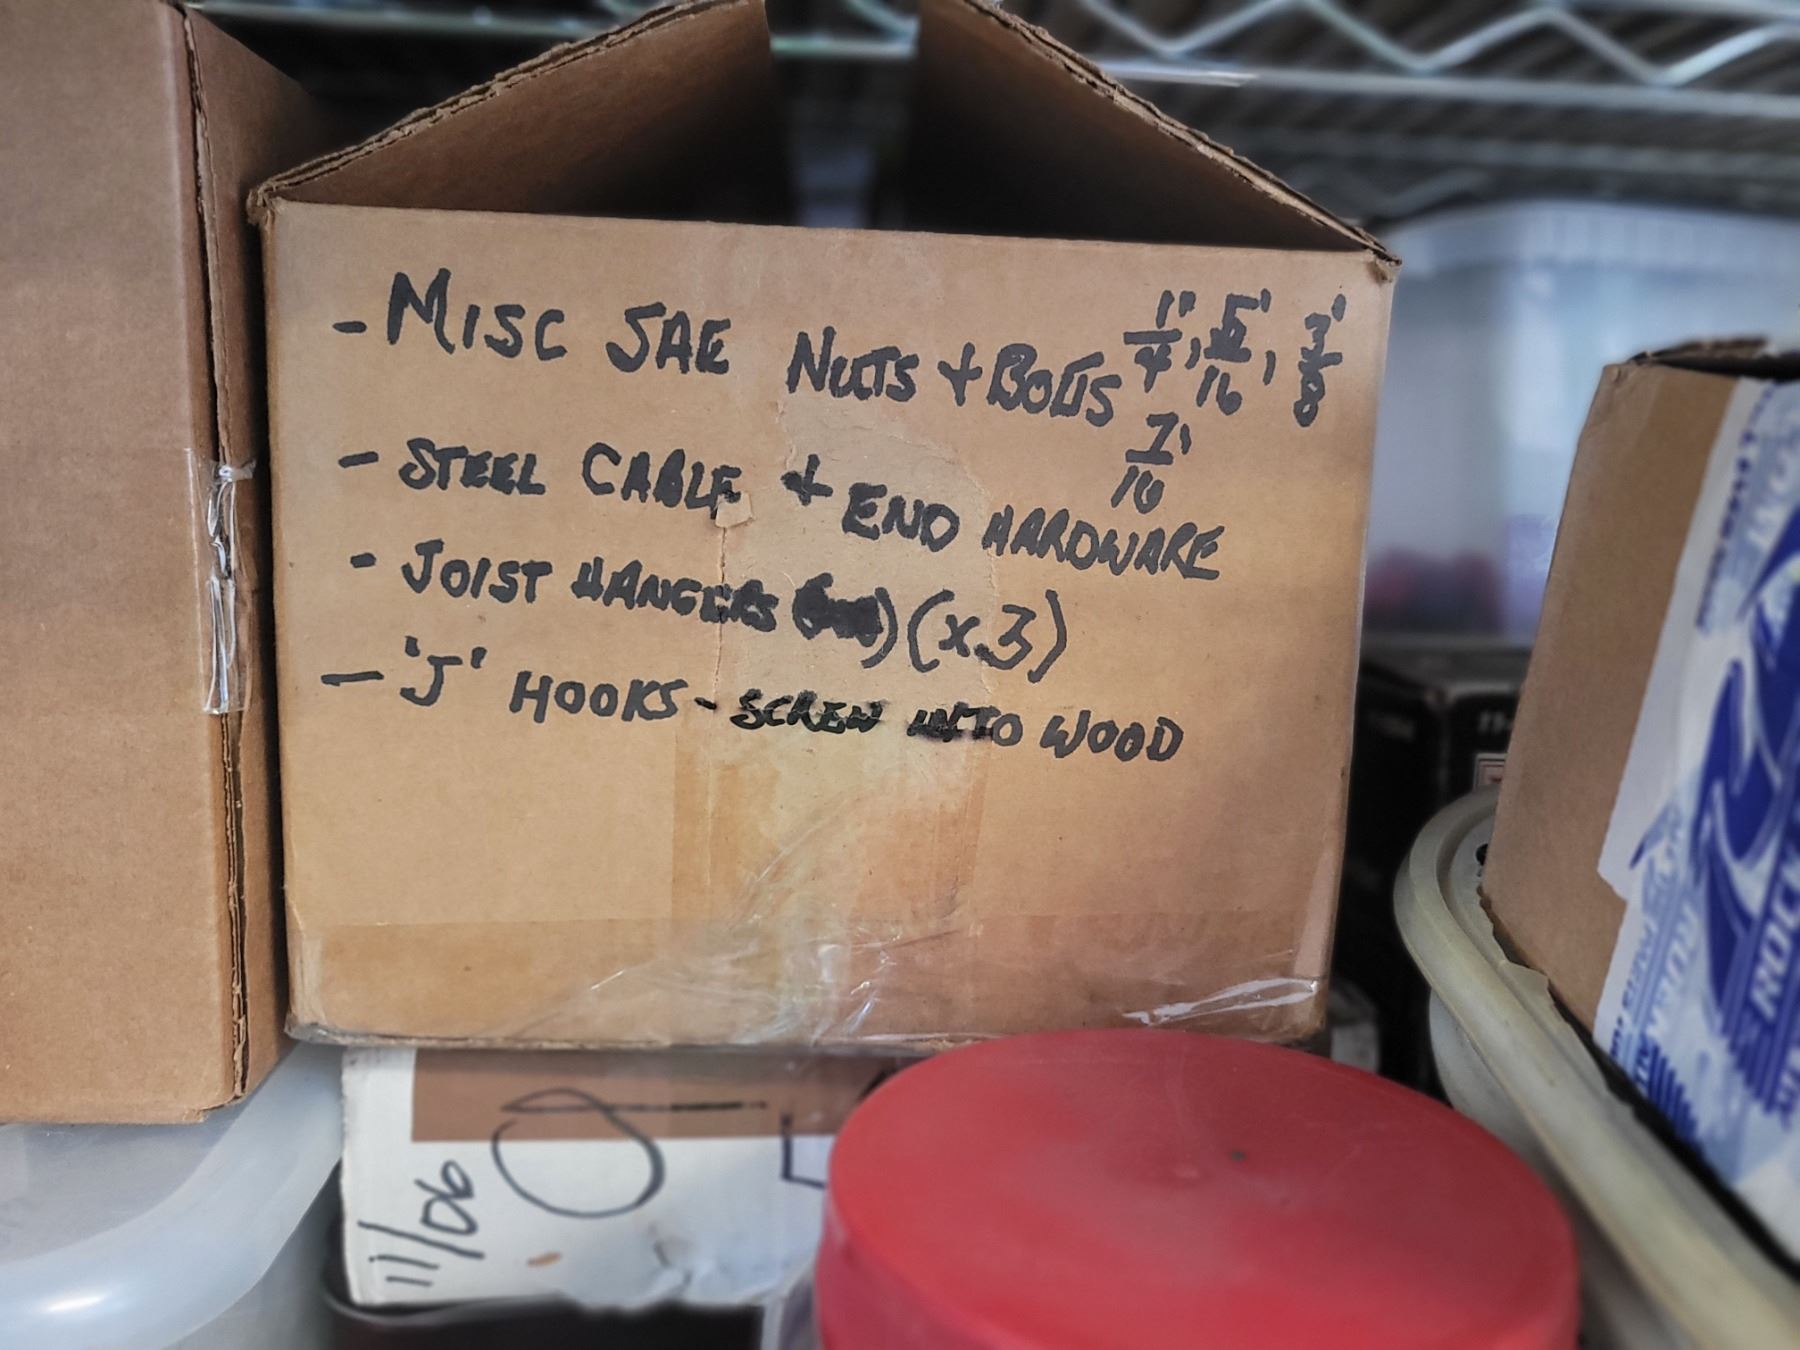 - MISC SAE NUTS + BOLTS 1/4", 5/16", 3/8"
7/16"
- STEEL CABLE + END HARDWARE
- JOIST HANGERS (x3)
- 'J' HOOKS - SCREW INTO WOOD
11/06